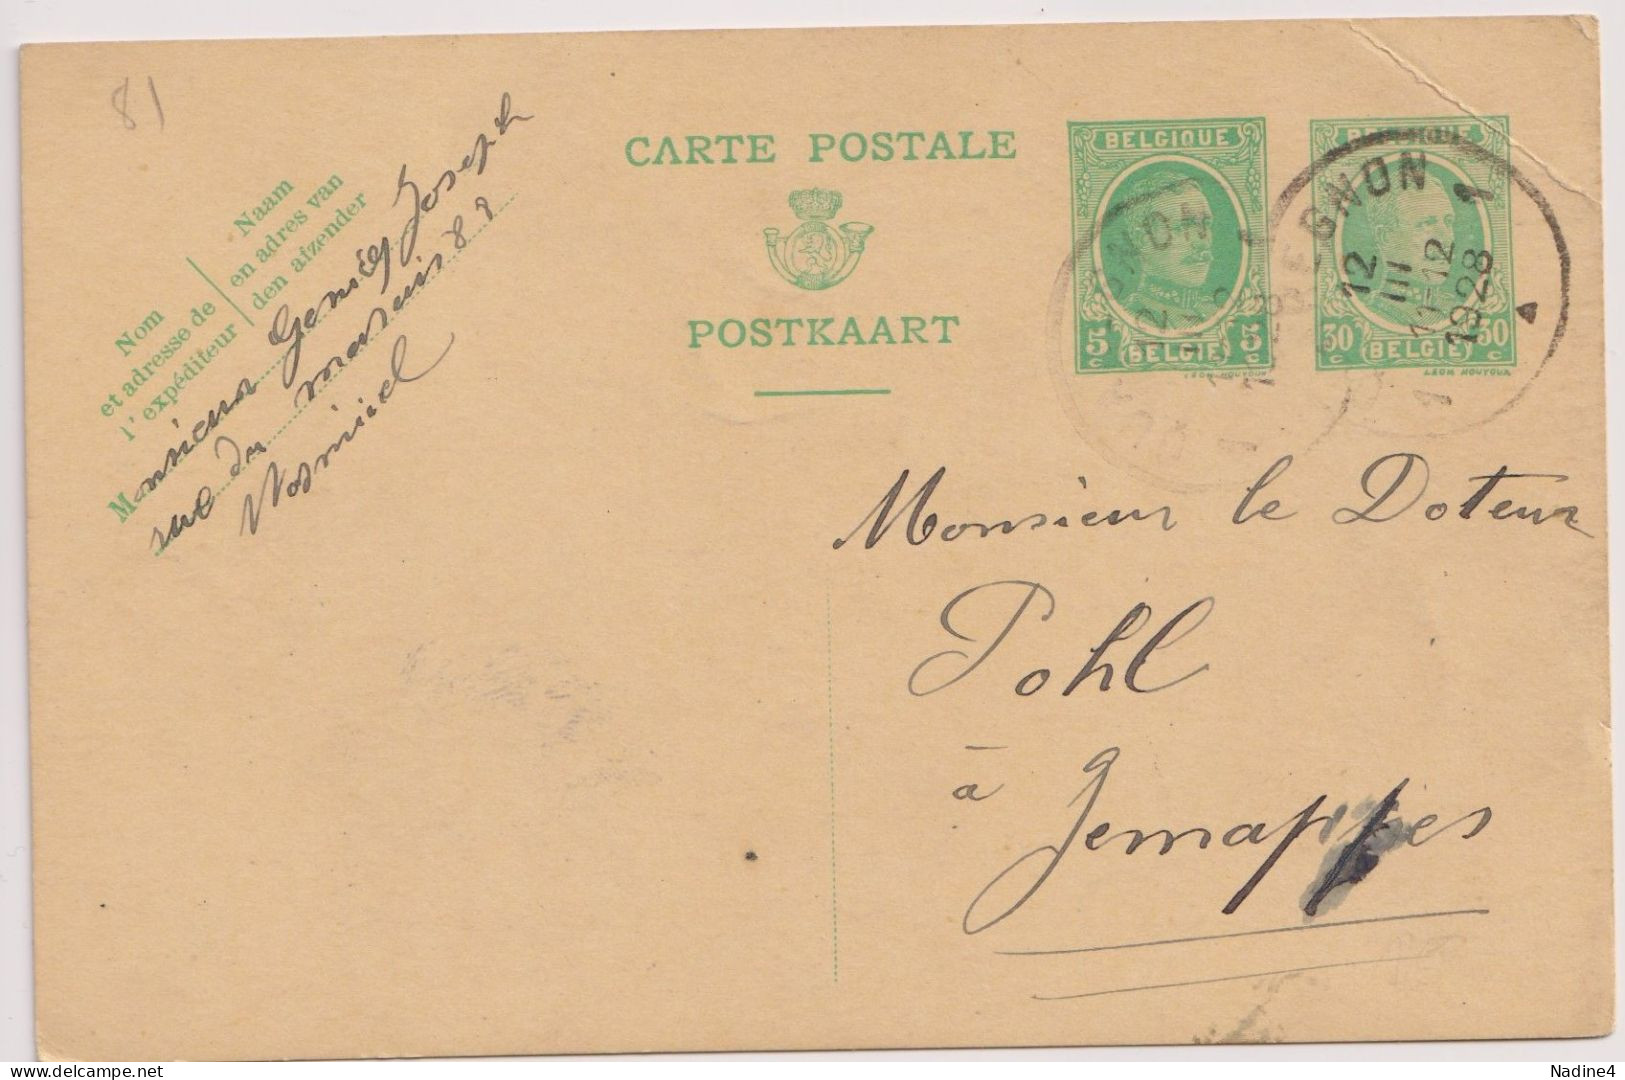 81
CARTE POSTALE
POSTKAART
Nom
et adresse de
l'expéditeur
Naam
en adres van
den afzender
Monsieur Joseph
rue du 88
BELGIQUE
5 c 5 c
BELGIË
LEON HOUYOUX
BELGIQUE
30 c 30 c
BELGIË
LEON HOUYOUX
GNON 1
12
III
11-12
1928
1
Monsieur le Doteur
Pohl
à
Jemappes
delcampe.net
Nadine4